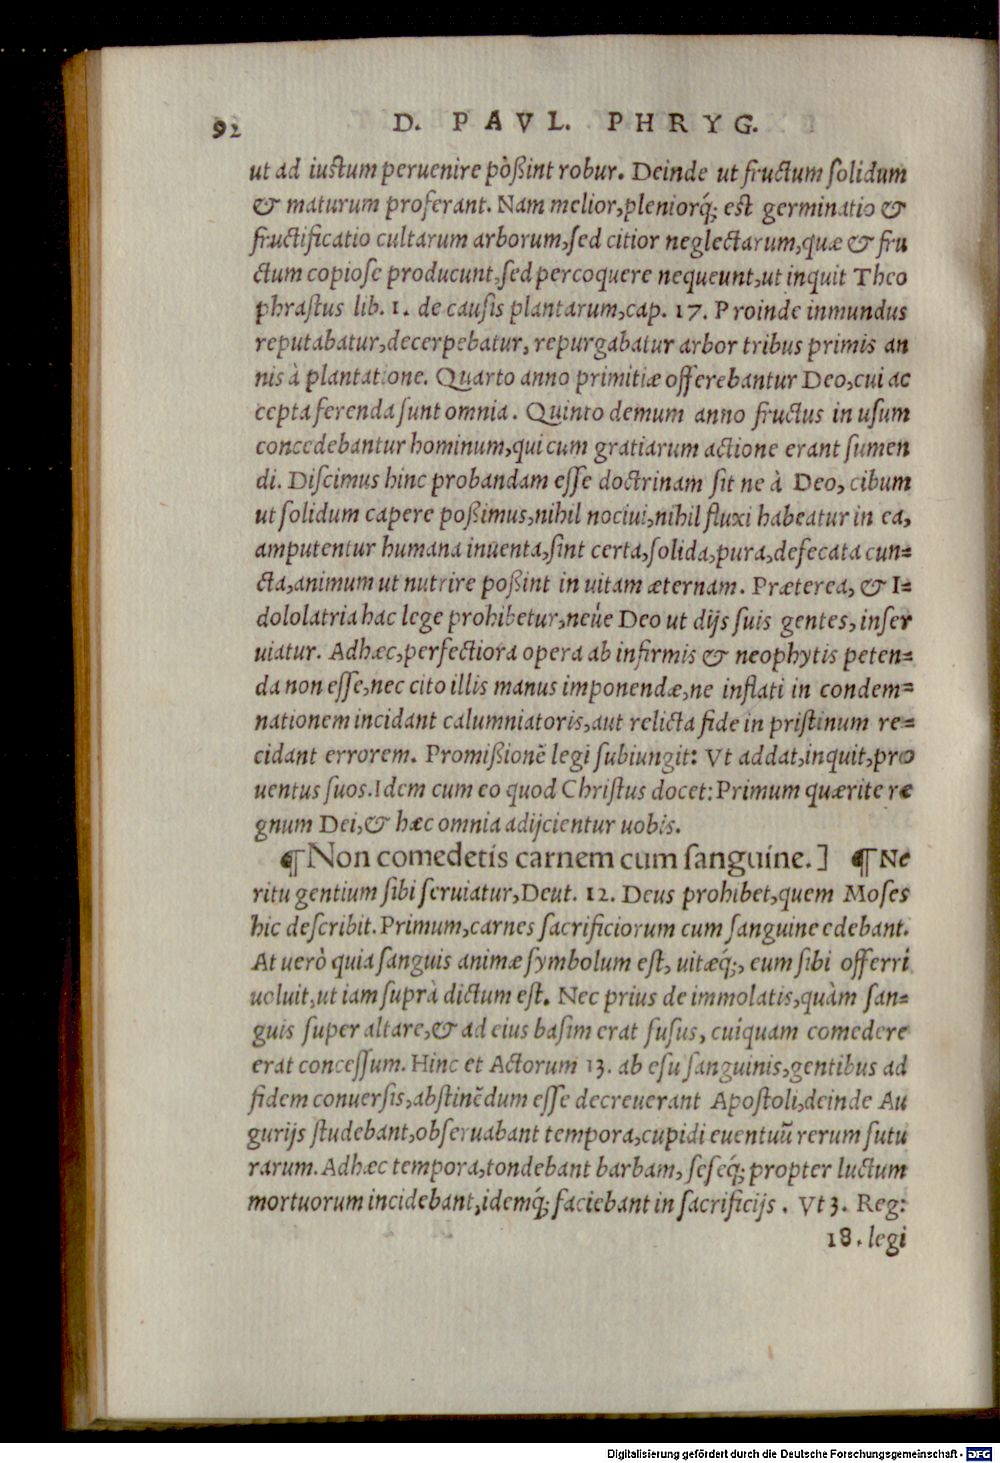 92 D. PAVL. PHRYG.
ut ad iuſtum peruenire pòßint robur. Deinde ut fructum ſolidum
& maturum proferant. Nam melior, pleniorq́; est germinatio &
fructificatio cultarum arborum, ſed citior neglectarum, quæ & fru
ctum copioſe producunt, ſed percoquere nequeunt, ut inquit Theo
phraſtus lib. 1. de cauſis plantarum, cap. 17. Proinde inmundus
reputabatur, decerpebatur, repurgabatur arbor tribus primis an
nis à plantatione. Quarto anno primitiæ offerebantur Deo, cui ac
cepta ferenda ſunt omnia. Quinto demum anno fructus in uſum
concedebantur hominum, qui cum gratiarum actione erant ſumen
di. Diſcimus hinc probandam eſſe doctrinam ſit ne à Deo, cibum
ut ſolidum capere poßimus, nihil nociui, nihil fluxi habeatur in ea,
amputentur humana inuenta, ſint certa, ſolida, pura, defecata cun=
cta, animum ut nutrire poßint in uitam æternam. Præterea, & I=
dololatria hac lege prohibetur, neúe Deo ut dijs ſuis gentes, inſer
uiatur. Adhæc, perfectiora opera ab infirmis & neophytis peten=
da non eſſe, nec cito illis manus imponendæ, ne inflati in condem=
nationem incidant calumniatoris, aut relicta fide in priſtinum re=
cidant errorem. Promißionẽ legi ſubiungit: Vt addat, inquit, pro
uentus ſuos. Idem cum eo quod Chriſtus docet: Primum quærite re
gnum Dei, & hæc omnia adijcientur uobis.
¶ Non comedetis carnem cum ſanguine.] ¶ Ne
ritu gentium ſibi ſeruiatur, Deut. 12. Deus prohibet, quem Moſes
hic deſcribit. Primum, carnes ſacrificiorum cum ſanguine edebant.
At uerò quia ſanguis animæ ſymbolum eſt, uitæq́;, eum ſibi offerri
uoluit, ut iam ſuprà dictum eſt. Nec prius de immolatis, quàm ſan=
guis ſuper altare, & ad eius baſim erat fuſus, cuiquam comedere
erat conceſſum. Hinc et Actorum 13. ab eſu ſanguinis, gentibus ad
fidem conuerſis, abſtinẽdum eſſe decreuerant Apoſtoli, deinde Au
gurijs ſtudebant, obſeruabant tempora, cupidi euentuũ rerum futu
rarum. Adhæc tempora, tondebant barbam, ſeſeq́; propter luctum
mortuorum incidebant, idemq́; faciebant in ſacrificijs. Vt 3. Reg:
18. legi
Digitalisierung gefördert durch die Deutsche Forschungsgemeinschaft - DFG